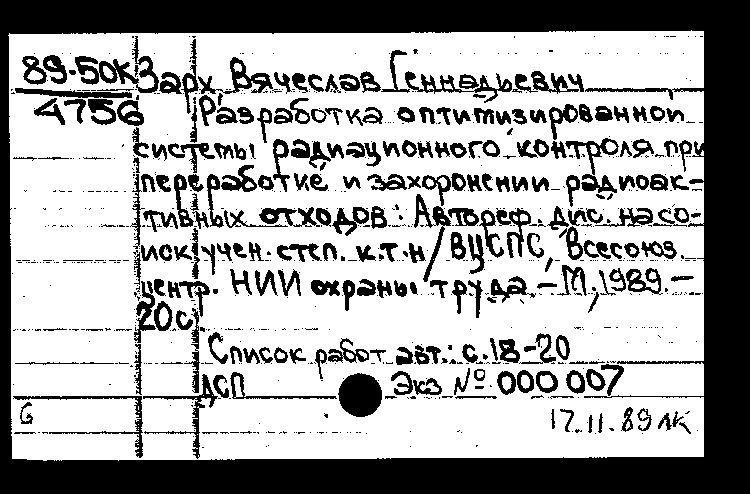 89-50к Зарх Вячеслав Геннадьевич
4756 Разработка оптимизированной
системы радиационного контроля при
переработке и захоронении радиоак-
тивных отходов: Автореф. дис. на со-
иск учен. степ. к.т.н/ВЦСПС, Всесоюз.
центр. НИИ охраны труда.-М.,1989.-
20с.
Список работ авт.: с.18-20
ДСП Экз № 000 007
G 17.11.89 ЛК